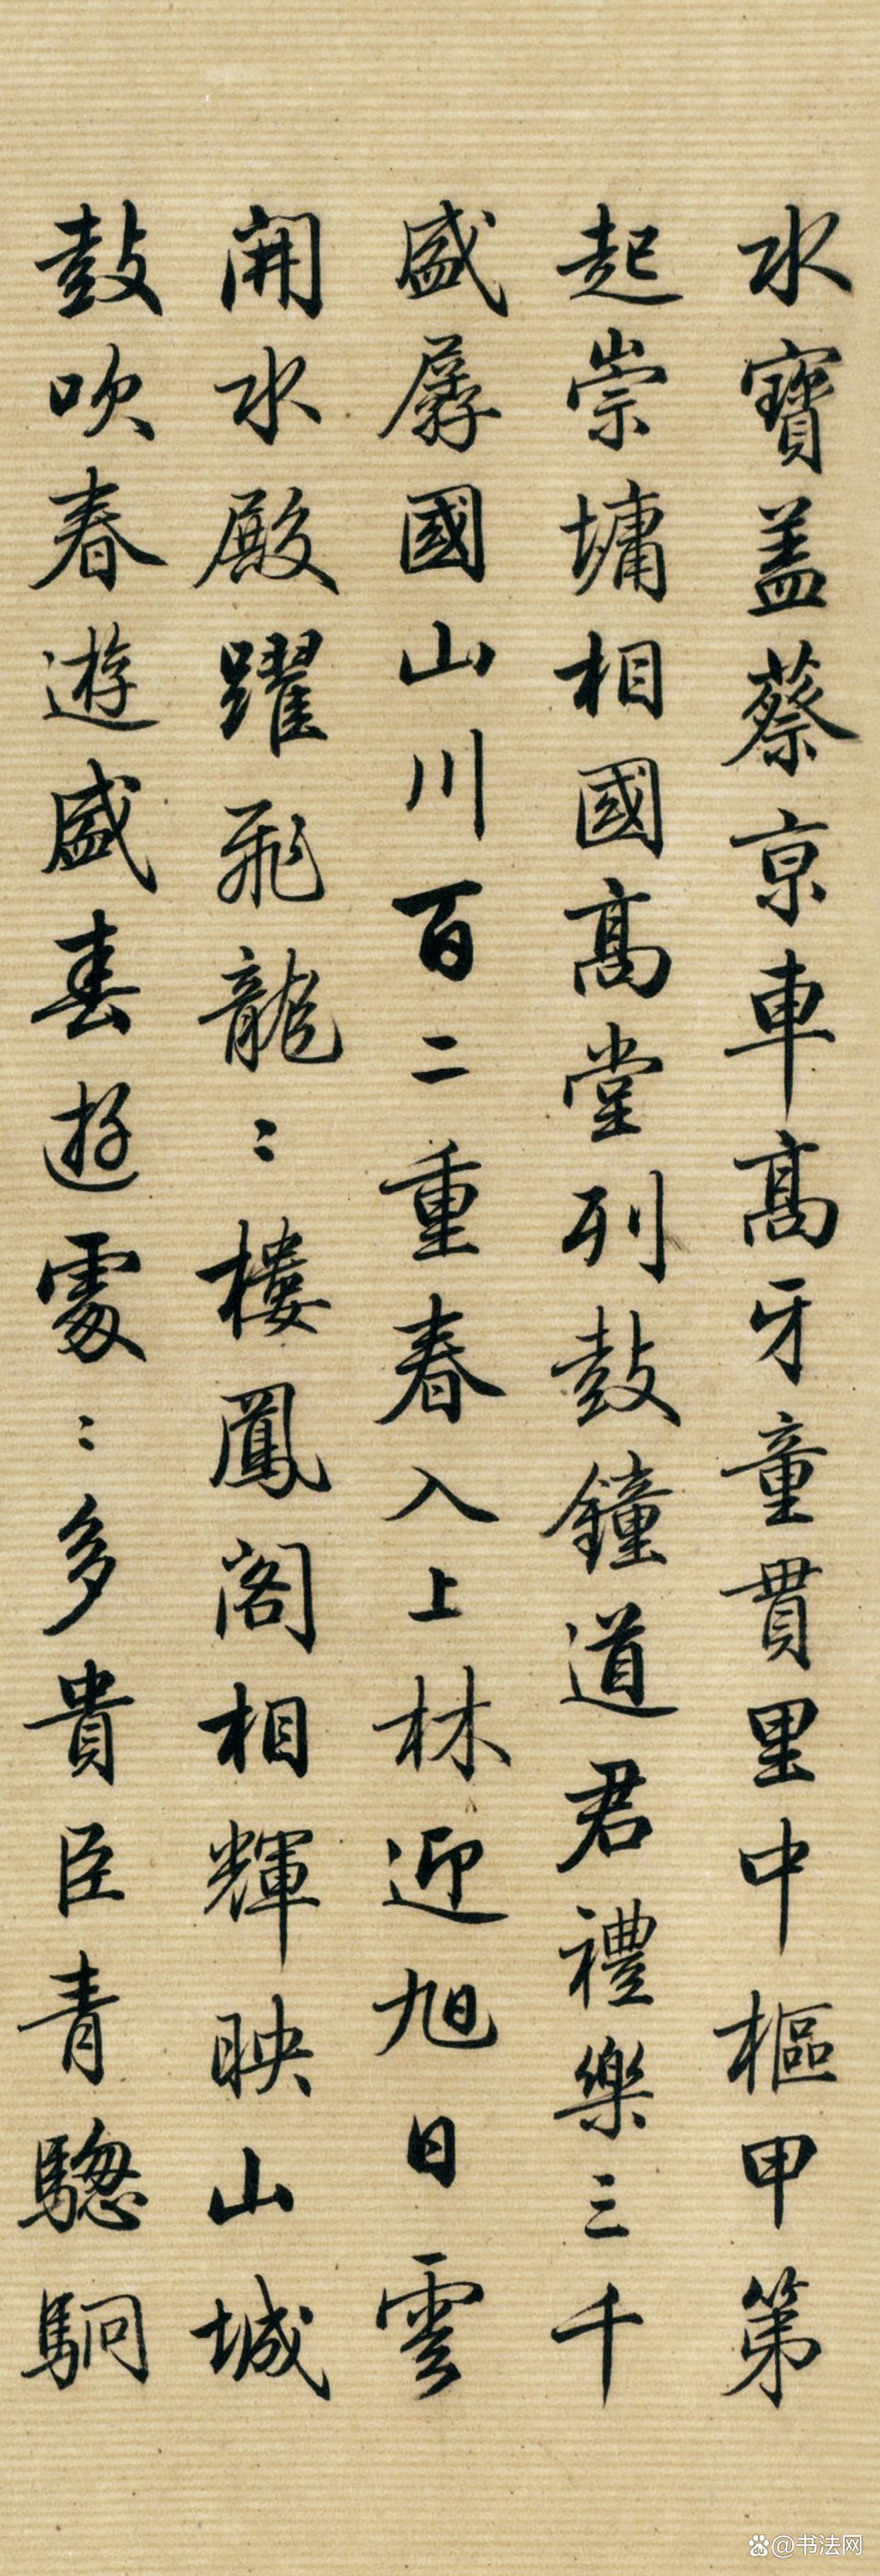 水寶蓋蔡京車高牙童貫里中樞甲第
起崇墉相國高堂列鼓鐘道君禮樂三千
盛孱國山川百二重春入上林迎旭日雲
開水殿躍飛龍〻樓鳳閣相輝映山城
鼓吹春遊盛春遊處〻多貴臣青驄駉
@书法网